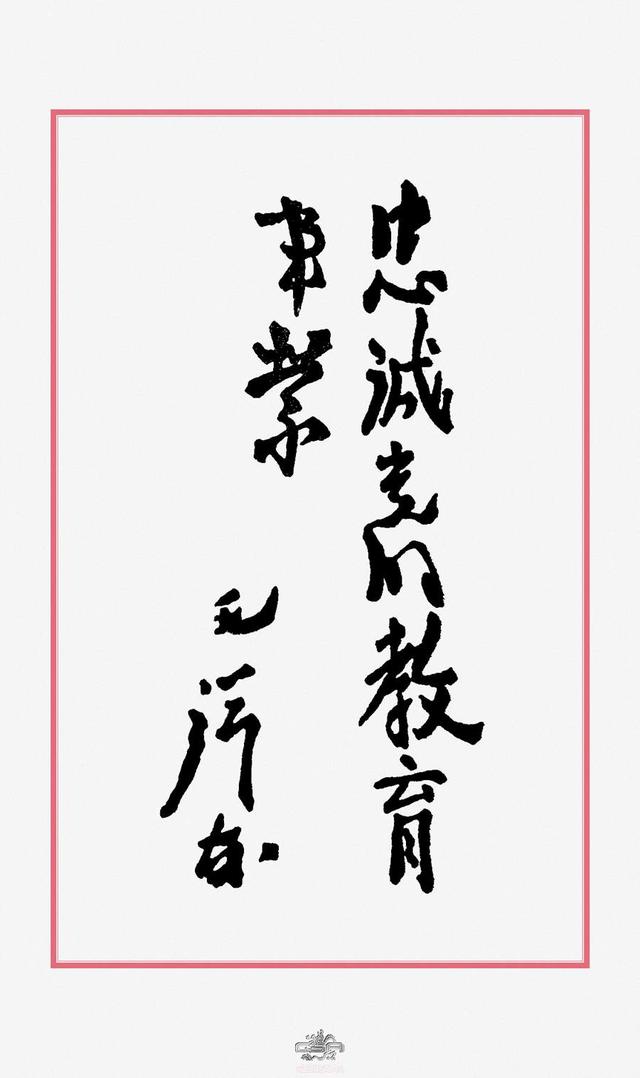 忠诚党的教育
事业
毛泽东